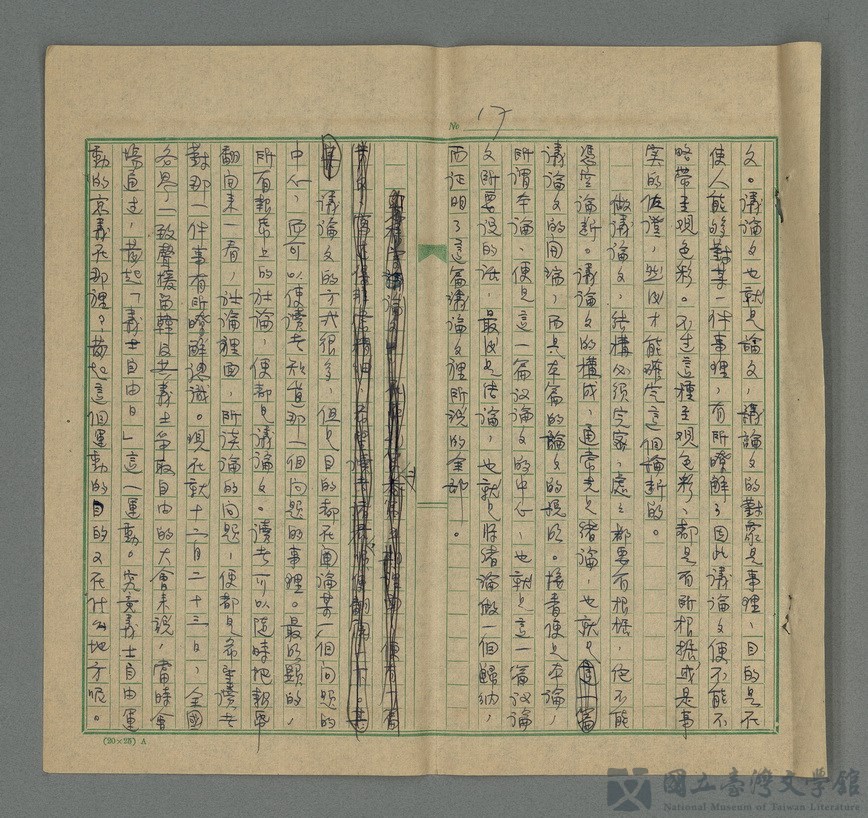 No 17
文。議論文也就是論文,議論文的對象是事理,目的是在
使人能夠對某一件事理,有所瞭解;因此議論文便不能不
略帶主觀色彩。不过這種主觀色彩,都是有所根據或是事
实的佐證,然後才能確定這個論断的。
做議論文,結構必須完密,處处都要有根據,绝不能
憑空論断。議論文的構成,通常先是緒論,也就是
議論文的開端,而是本篇的論文的提示。接着便是本論,
所謂本論,便是這一篇议論文的中心,也就是這一篇議論
文所要說的话,最後是结論,也就是将緒論做一個歸纳,
而证明了這篇議論文裡所說的全部。
議論文的方式很多,但是目的都在闡論某一個问题的
中心,而可以使讀者知道那一個问题的事理。最明顯的,
所有報章上的社論,便都是議論文。讀者可以隨時把報帋
翻闻来一看,社論裡面,所谈論的问题,便都是希望讀者
對那一件事有所瞭解認識。現在就十二月二十三日,全國
各界一致聲援留韓反共義士爭取自由的大會来說,當時會
場通过,發起「義士自由日」這一運動。究竟義士自由運
動的意義在那裡?發起這個運動的目的又在什么地方呢。
(20×25) A
國立臺灣文學館
National Museum of Taiwan Literature